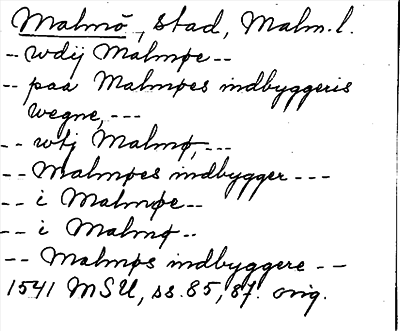 Malmö, stad, Malm.l.
-- wdij Malmøe --
-- paa Malmøes indbyggeris
wegne, ---
-- wtj Malmø, ---
-- Malmøes indbygger ---
-- i Malmøe --
-- i Malmø --
-- Malmøs indbyggere --
1541 MSU, ss. 85, 87. orig.